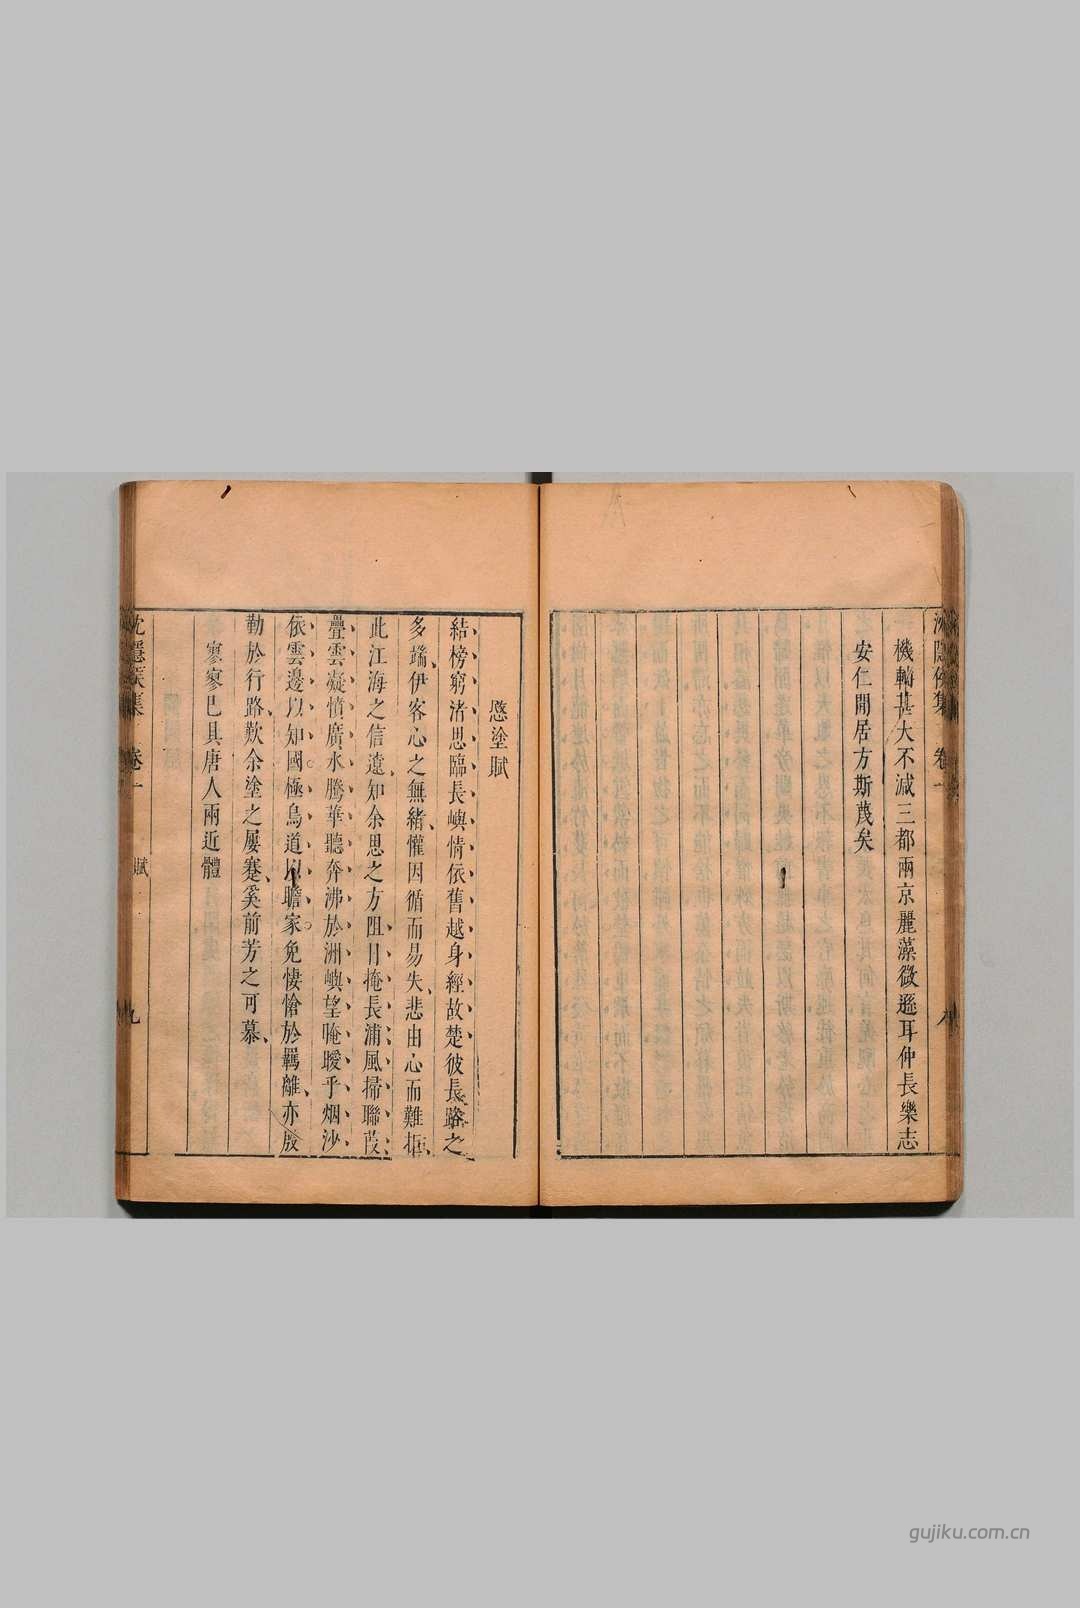 沈隱侯集 卷一
機軸甚大不減三都兩京麗藻微遜耳仲長樂志
安仁閒居方斯蔑矣
愍塗賦
結榜窮渚思臨長嶼情依舊越身經故楚彼長路之
多端伊客心之無緒懽因循而易失悲由心而難拒
此江海之信遠知余思之方阻日掩長浦風掃聯葭
疊雲凝憤廣水騰華聽奔沸於洲嶼望晻曖乎烟沙
依雲邊以知國極鳥道以瞻家免悽愴於羈離亦殷
勤於行路歎余塗之屢蹇奚前芳之可慕
寥寥已具唐人兩近體
沈隱侯集 卷一 賦 九
gujiku.com.cn